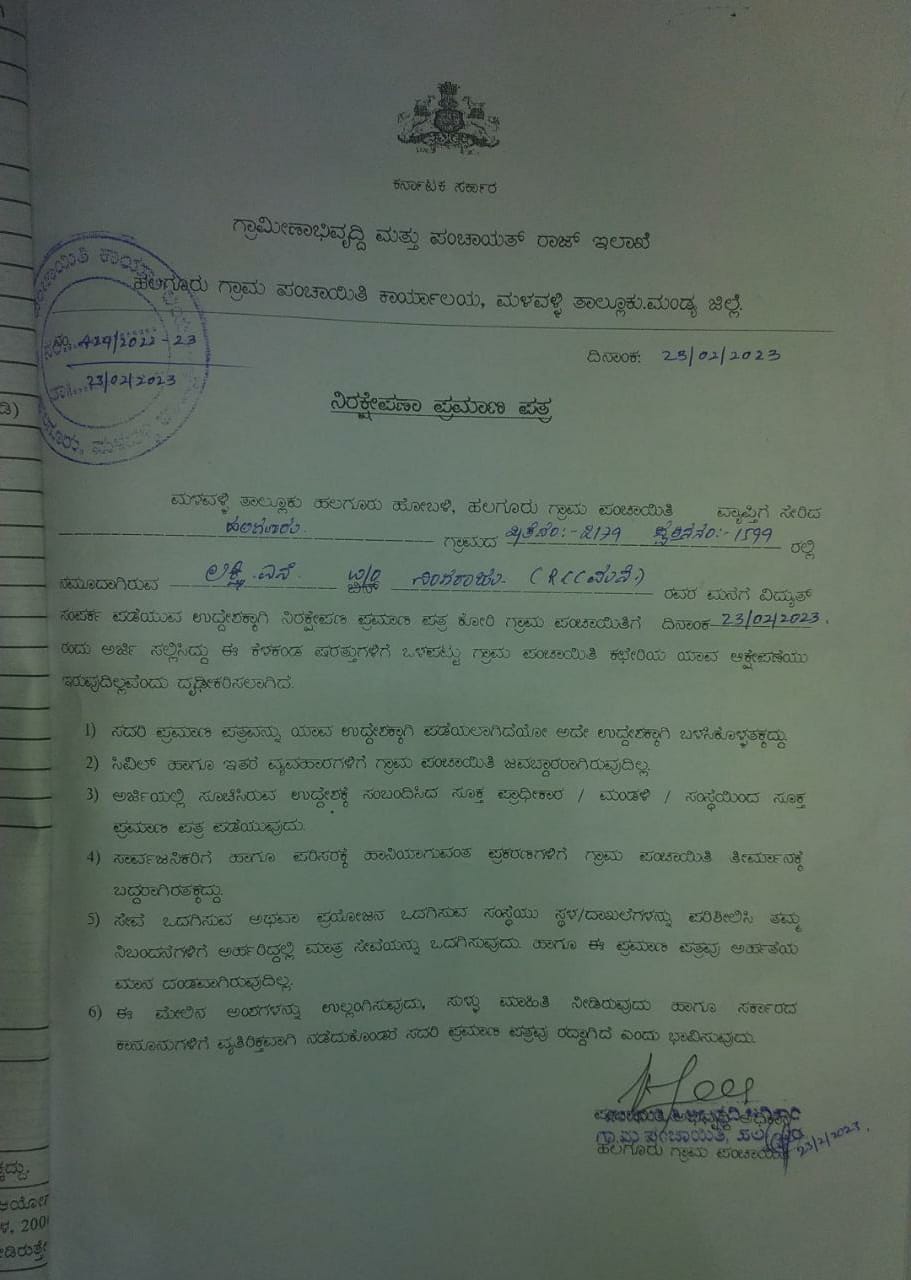 ಕರ್ನಾಟಕ ಸರ್ಕಾರ
ಗ್ರಾಮೀಣಾಭಿವೃದ್ಧಿ ಮತ್ತು ಪಂಚಾಯತ್ ರಾಜ್ ಇಲಾಖೆ
ಹಲಗೂರು ಗ್ರಾಮ ಪಂಚಾಯಿತಿ ಕಾರ್ಯಾಲಯ, ಮಳವಳ್ಳಿ ತಾಲ್ಲೂಕು.ಮಂಡ್ಯ ಜಿಲ್ಲೆ.
424/2022-23
ದಿನಾಂಕ: 23/02/2023
23/02/2023
ನಿರಕ್ಷೇಪಣಾ ಪ್ರಮಾಣ ಪತ್ರ
ಮಳವಳ್ಳಿ ತಾಲ್ಲೂಕು ಹಲಗೂರು ಹೋಬಳಿ, ಹಲಗೂರು ಗ್ರಾಮ ಪಂಚಾಯಿತಿ ವ್ಯಾಪ್ತಿಗೆ ಸೇರಿದ
ಹಲಗೂರು ಗ್ರಾಮದ -2179 -1599 ರಲ್ಲಿ
ನಮೂದಾಗಿರುವ ಲಕ್ಷ್ಮಿ.ಎನ್ W/O (RCC ಮನೆ) ರವರ ಮನೆಗೆ ವಿದ್ಯುತ್
ಸಂಪರ್ಕ ಪಡೆಯುವ ಉದ್ದೇಶಕ್ಕಾಗಿ ನಿರಕ್ಷೇಪಣ ಪ್ರಮಾಣ ಪತ್ರ ಕೋರಿ ಗ್ರಾಮ ಪಂಚಾಯಿತಿಗೆ ದಿನಾಂಕ 23/02/2023.
ರಂದು ಅರ್ಜಿ ಸಲ್ಲಿಸಿದ್ದು ಈ ಕೆಳಕಂಡ ಷರತ್ತುಗಳಿಗೆ ಒಳಪಟ್ಟು ಗ್ರಾಮ ಪಂಚಾಯಿತಿ ಕಛೇರಿಯ ಯಾವ ಆಕ್ಷೇಪಣೆಯು
ಇರುವುದಿಲ್ಲವೆಂದು ದೃಢೀಕರಿಸಲಾಗಿದೆ.
1) ಸದರಿ ಪ್ರಮಾಣ ಪತ್ರವನ್ನು ಯಾವ ಉದ್ದೇಶಕ್ಕಾಗಿ ಪಡೆಯಲಾಗಿದೆಯೋ ಅದೇ ಉದ್ದೇಶಕ್ಕಾಗಿ ಬಳಸಿಕೊಳ್ಳತಕ್ಕದ್ದು.
2) ಸಿವಿಲ್ ಹಾಗೂ ಇತರೆ ವ್ಯವಹಾರಗಳಿಗೆ ಗ್ರಾಮ ಪಂಚಾಯಿತಿ ಜವಬ್ದಾರರಾಗಿರುವುದಿಲ್ಲ.
3) ಅರ್ಜಿಯಲ್ಲಿ ಸೂಚಿಸಿರುವ ಉದ್ದೇಶಕ್ಕೆ ಸಂಬಂದಿಸಿದ ಸೂಕ್ತ ಪ್ರಾಧೀಕಾರ / ಮಂಡಳಿ / ಸಂಸ್ಥೆಯಿಂದ ಸೂಕ್ತ
ಪ್ರಮಾಣ ಪತ್ರ ಪಡೆಯುವುದು.
4) ಸಾರ್ವಜನಿಕರಿಗೆ ಹಾಗೂ ಪರಿಸರಕ್ಕೆ ಹಾನಿಯಾಗುವಂತ ಪ್ರಕರಣಗಳಿಗೆ ಗ್ರಾಮ ಪಂಚಾಯಿತಿ ತೀರ್ಮಾನಕ್ಕೆ
ಬದ್ದರಾಗಿರತಕ್ಕದ್ದು.
5) ಸೇವೆ ಒದಗಿಸುವ ಅಥವಾ ಪ್ರಯೋಜನ ಒದಗಿಸುವ ಸಂಸ್ಥೆಯು ಸ್ಥಳ/ದಾಖಲೆಗಳನ್ನು ಪರಿಶೀಲಿಸಿ ತಮ್ಮ
ನಿಬಂದನೆಗಳಿಗೆ ಅರ್ಹರಿದ್ದಲ್ಲಿ ಮಾತ್ರ ಸೇವೆಯನ್ನು ಒದಗಿಸುವುದು. ಹಾಗೂ ಈ ಪ್ರಮಾಣ ಪತ್ರವು ಅರ್ಹತೆಯ
ಮಾನ ದಂಡವಾಗಿರುವುದಿಲ್ಲ.
6) ಈ ಮೇಲಿನ ಅಂಶಗಳನ್ನು ಉಲ್ಲಂಗಿಸುವುದು, ಸುಳ್ಳು ಮಾಹಿತಿ ನೀಡಿರುವುದು ಹಾಗೂ ಸರ್ಕಾರದ
ಕಾನೂನುಗಳಿಗೆ ವ್ಯತಿರಿಕ್ತವಾಗಿ ನಡೆದುಕೊಂಡರೆ ಸದರಿ ಪ್ರಮಾಣ ಪತ್ರವು ರದ್ದಾಗಿದೆ ಎಂದು ಭಾವಿಸುವುದು.
ಗ್ರಾಮ ಪಂಚಾಯಿತಿ,
ಹಲಗೂರು ಗ್ರಾಮ ಪಂಚಾಯಿತಿ 23/2/2023.